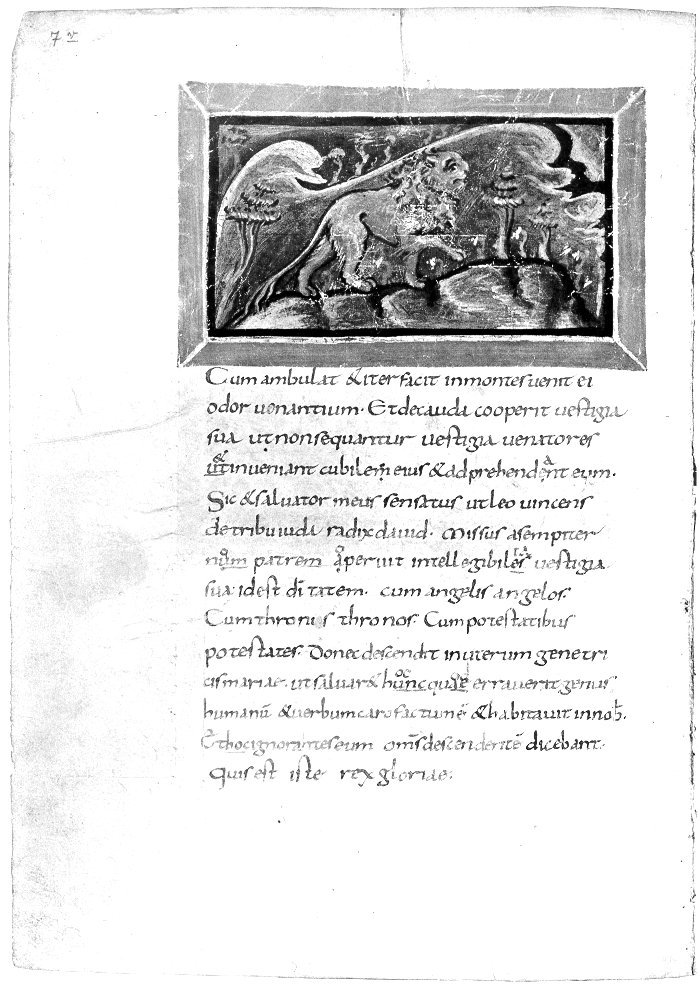 7 v
Cum ambulat & iter facit in montes uenit ei
odor uenantium· Et de cauda cooperit uestigia
sua ut non sequantur uestigia uenatores
ut inueniant cubilem eius & adprehendent eum·
Sic & saluator meus sensatus ut leo uincens
de tribu iuda radix dauid· Missus a sempiter
num patrem aperuit intellegibiles uestigia
sua· id est di tatem· cum angelis angelos·
Cum thronis thronos· Cum potestatibus
potestates· Donec descendit in uterum genetri
cis mariae· ut saluar& hunc quae errauerit genus
humanū & uerbum caro factum ē· & habitauit in nob·
Et hoc ignorantes eum om̄s descendentē dicebant·
Quis est iste rex gloriae: